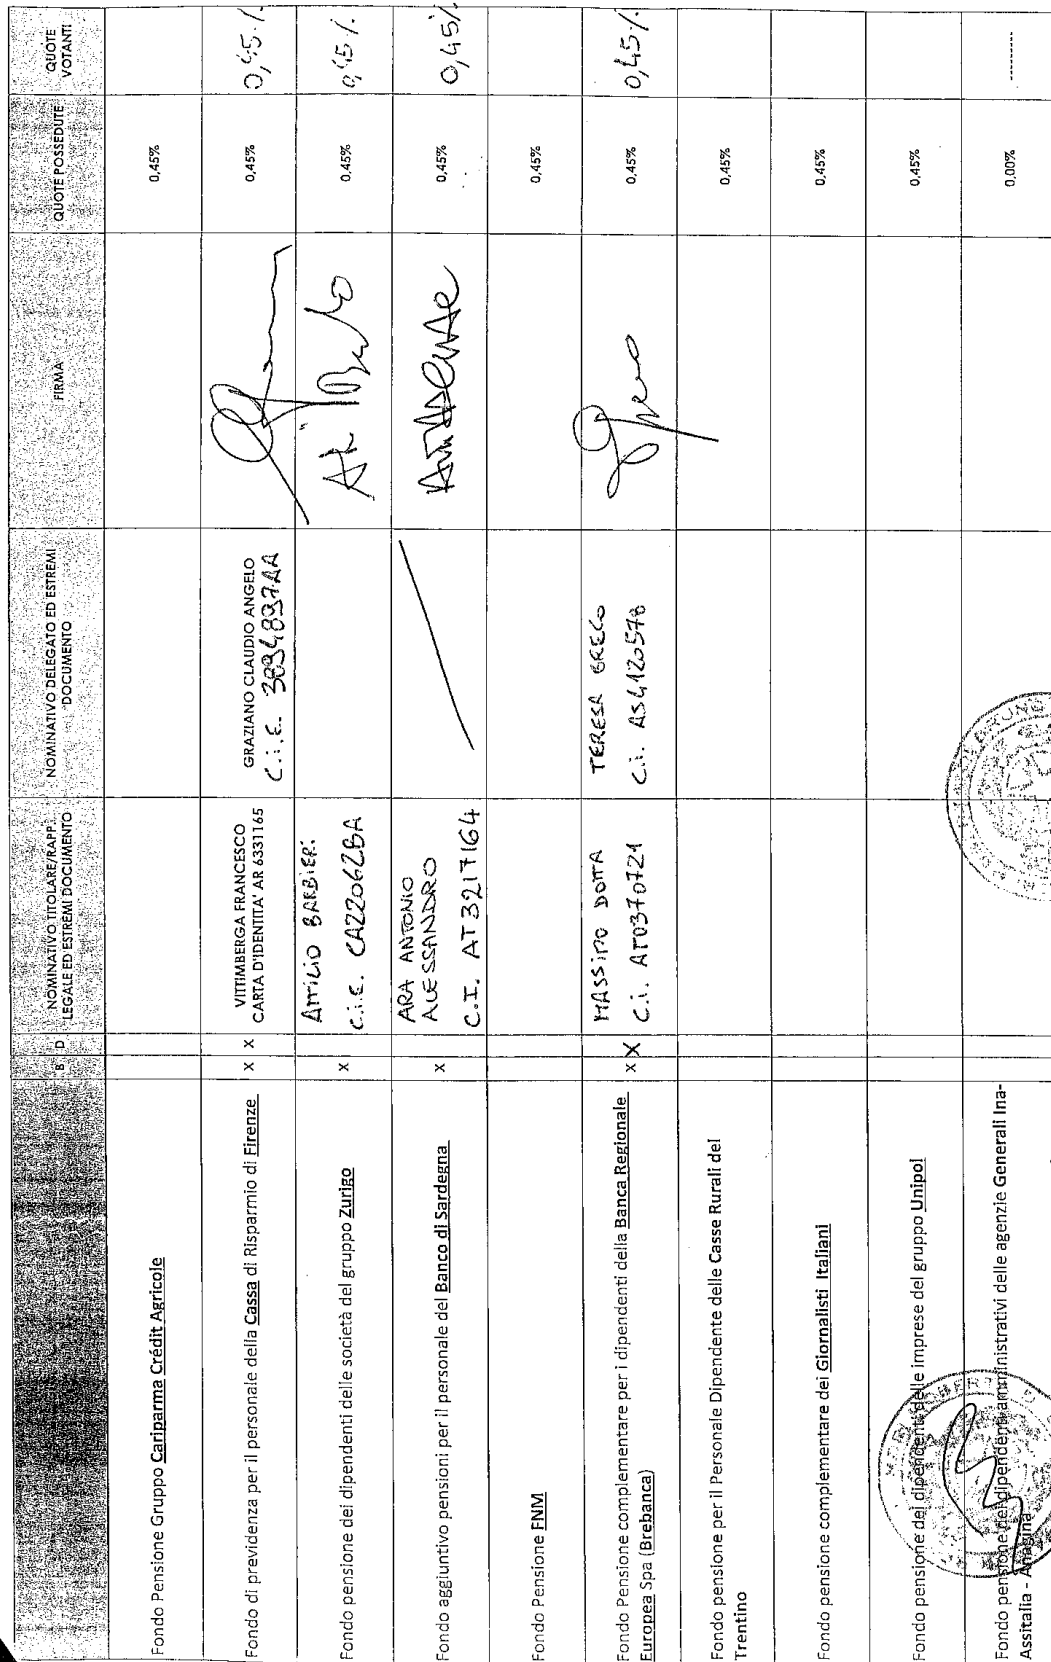 B D NOMINATIVO TITOLARE/RAPP. LEGALE ED ESTREMI DOCUMENTO NOMINATIVO DELEGATO ED ESTREMI DOCUMENTO FIRMA QUOTE POSSEDUTE QUOTE VOTANTI
Fondo Pensione Gruppo Cariparma Crédit Agricole 0,45%
Fondo di previdenza per il personale della Cassa di Risparmio di Firenze X X VITTIMBERGA FRANCESCO GRAZIANO CLAUDIO ANGELO 0,45% 0,45%
CARTA D'IDENTITA' AR 6331165 C.i.E. 3894897AA
Fondo pensione dei dipendenti delle società del gruppo Zurigo X ATTILIO BARBIERI 0,45% 0,45%
C.i.E. CA22062BA
Fondo aggiuntivo pensioni per il personale del Banco di Sardegna X ARA ANTONIO 0,45% 0,45%
ALESSANDRO
C.I. AT3217164
Fondo Pensione FNM 0,45%
Fondo Pensione complementare per i dipendenti della Banca Regionale X X MASSIMO DOTTA TERESA GRECO 0,45% 0,45%
Europea Spa (Brebanca) C.i. AT0370721 C.i. AS4120578
Fondo pensione per il Personale Dipendente delle Casse Rurali del 0,45%
Trentino
Fondo pensione complementare dei Giornalisti Italiani 0,45%
Fondo pensione dei dipendenti delle imprese del gruppo Unipol 0,45%
Fondo pensione dei dipendenti amministrativi delle agenzie Generali Ina- 0,00% ----------
Assitalia - Anagina